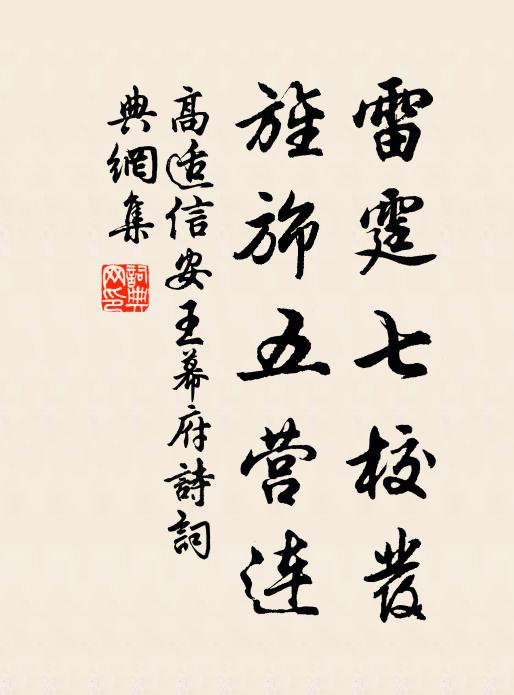 雷霆七校發
旌旆五营連
高适信安王幕府詩詞
典網集
詞典
网印